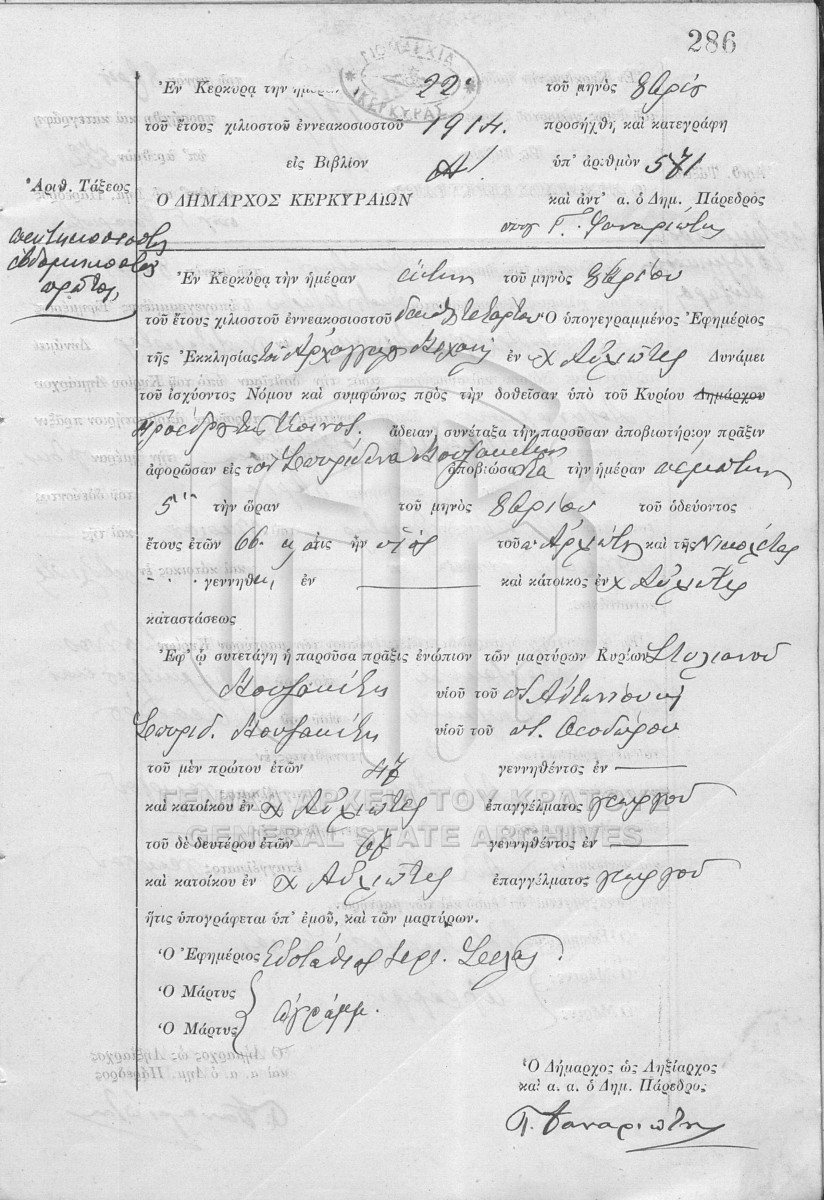 286
ΔΗΜΑΡΧΙΑ ΚΕΡΚΥΡΑΣ
Ἐν Κερκύρᾳ τὴν ἡμέραν 22 τοῦ μηνὸς 8βρίου
τοῦ ἔτους χιλιοστοῦ ἐννεακοσιοστοῦ 1914. προσήχθη καὶ κατεγράφη
εἰς Βιβλίον Α! ὑπ' ἀριθμὸν 571
Ἀριθ. Τάξεως
Ο ΔΗΜΑΡΧΟΣ ΚΕΡΚΥΡΑΙΩΝ καὶ ἀντ' α. ὁ Δημ. Πάρεδρος
Γ. Φαναριώτης
πεντηκοσιοστὸς
ἑβδομηκοστὸς
πρῶτος
Ἐν Κερκύρᾳ τὴν ἡμέραν τοῦ μηνὸς 8βρίου
τοῦ ἔτους χιλιοστοῦ ἐννεακοσιοστοῦ δεκάτου τετάρτου Ὁ ὑπογεγραμμένος Ἐφημέριος
τῆς Ἐκκλησίας τοῦ Ἀρχαγγέλου Μιχαὴλ ἐν χ Αὐλιῶτες Δυνάμει
τοῦ ἰσχύοντος Νόμου καὶ συμφώνως πρὸς τὴν δοθεῖσαν ὑπὸ τοῦ Κυρίου Δημάρχου
Προέδρου τῆς Κοινοτ. ἄδειαν, συνέταξα τὴν παροῦσαν ἀποβιωτήριον πρᾶξιν
ἀφορῶσαν εἰς τὸν Σπυρίδωνα Κουζακίτην ἀποβιώσαντα τὴν ἡμέραν πέμπτην
5ην τὴν ὥραν τοῦ μηνὸς 8βρίου τοῦ ὁδεύοντος
ἔτους ἐτῶν 66 ὅστις ἦν υἱὸς τοῦ Ἀρχιώτη καὶ τῆς Νικολέτας
γεννηθεὶς ἐν καὶ κάτοικος ἐν χ Αὐλιῶτες
καταστάσεως
Ἐφ' ᾧ συνετάγη ἡ παροῦσα πρᾶξις ἐνώπιον τῶν μαρτύρων Κυρίων Στυλιανοῦ
Κουζακίτης υἱοῦ τοῦ π. Ἀντωνίου καὶ
Σπυρίδ. Κουζακίτης υἱοῦ τοῦ π. Θεοδώρου
τοῦ μὲν πρώτου ἐτῶν 47 γεννηθέντος ἐν
καὶ κατοίκου ἐν χ Αὐλιῶτες ἐπαγγέλματος γεωργοῦ
ΓΕΝΙΚΑ ΑΡΧΕΙΑ ΤΟΥ ΚΡΑΤΟΥΣ
GENERAL STATE ARCHIVES
τοῦ δὲ δευτέρου ἐτῶν 67 γεννηθέντος ἐν
καὶ κατοίκου ἐν χ Αὐλιῶτες ἐπαγγέλματος γεωργοῦ
ἥτις ὑπογράφεται ὑπ' ἐμοῦ, καὶ τῶν μαρτύρων.
Ὁ Ἐφημέριος Εὐστάθιος ἱερ.
Ὁ Μάρτυς
Ὁ Μάρτυς ἀγράμμ.
Ὁ Δήμαρχος ὡς Ληξίαρχος
καὶ α. α. ὁ Δημ. Πάρεδρος
Γ. Φαναριώτης